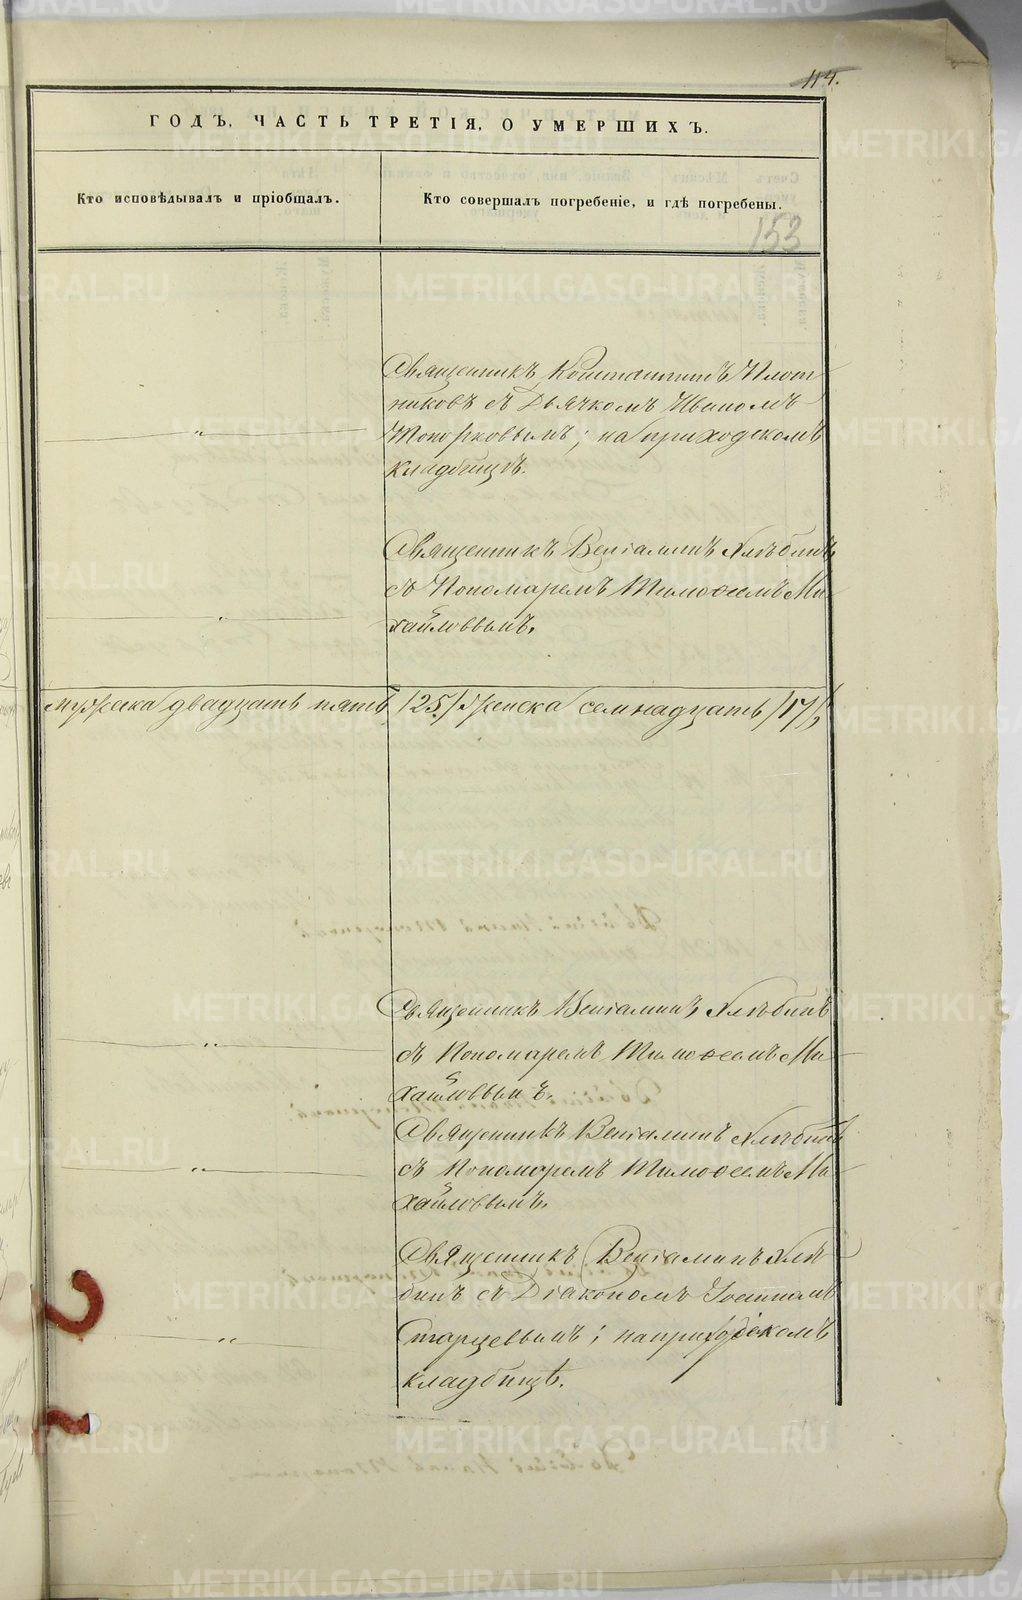 114.
ГОДЪ, ЧАСТЬ ТРЕТІЯ, О УМЕРШИХЪ.
Кто исповѣдывалъ и пріобщалъ.
Кто совершалъ погребеніе, и гдѣ погребены.
153
Священникъ Константинъ Плот-
никовъ съ Дьячкомъ Иваномъ
Топорковымъ; на приходскомъ
кладбищѣ.
Священникъ Веніаминъ Хлѣбинъ
съ Пономаремъ Тимофеемъ Ми-
хайловымъ.
мужеска двадцать пять /25./ женска семнадцать /17/
Священникъ Веніаминъ Хлѣбинъ
съ Пономаремъ Тимофеемъ Ми-
хайловымъ.
Священникъ Веніаминъ Хлѣбинъ
съ Пономаремъ Тимофеемъ Ми-
хайловымъ.
Священникъ Веніаминъ Хлѣ-
бинъ съ Діакономъ Іоанномъ
Старцевымъ; на приходскомъ
кладбищѣ.
METRIKI.GASO-URAL.RU